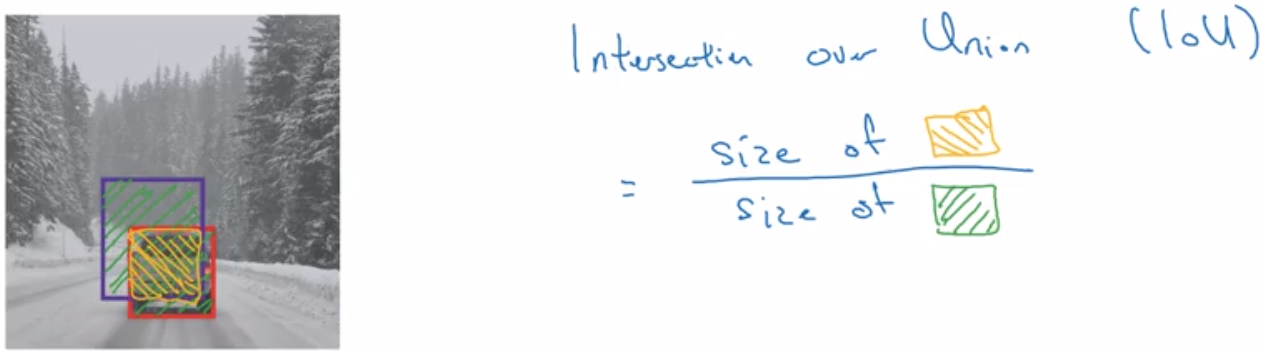 Intersection over Union (IoU)
= size of
size of